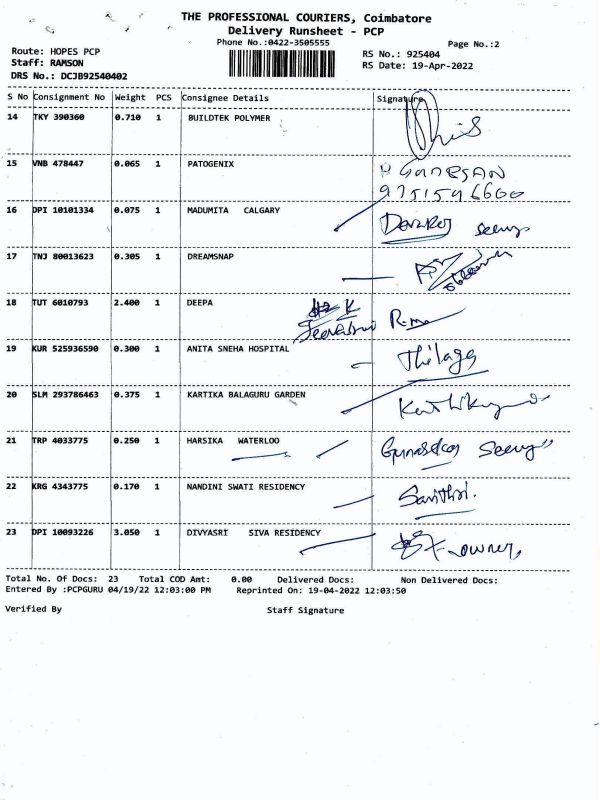 THE PROFESSIONAL COURIERS, Coimbatore
Delivery Runsheet - PCP
Phone No.:0422-3505555
Page No.:2
Route: HOPES PCP
RS No.: 925404
Staff: RAMSON
RS Date: 19-Apr-2022
DRS No.: DCJB92540402
S No Consignment No Weight PCS Consignee Details Signature
14 TKY 390360 0.710 1 BUILDTEK POLYMER
15 VNB 478447 0.065 1 PATOGENIX
16 DPI 10101334 0.075 1 MADUMITA CALGARY
17 TNJ 80013623 0.305 1 DREAMSNAP
18 TUT 6010793 2.400 1 DEEPA
19 KUR 525936590 0.300 1 ANITA SNEHA HOSPITAL Thilaga
20 SLM 293786463 0.375 1 KARTIKA BALAGURU GARDEN
21 TRP 4033775 0.250 1 HARSIKA WATERLOO
22 KRG 4343775 0.170 1 NANDINI SWATI RESIDENCY Savithri.
23 DPI 10093226 3.050 1 DIVYASRI SIVA RESIDENCY owner
Total No. Of Docs: 23 Total COD Amt: 0.00 Delivered Docs: Non Delivered Docs:
Entered By :PCPGURU 04/19/22 12:03:00 PM Reprinted On: 19-04-2022 12:03:50
Verified By Staff Signature